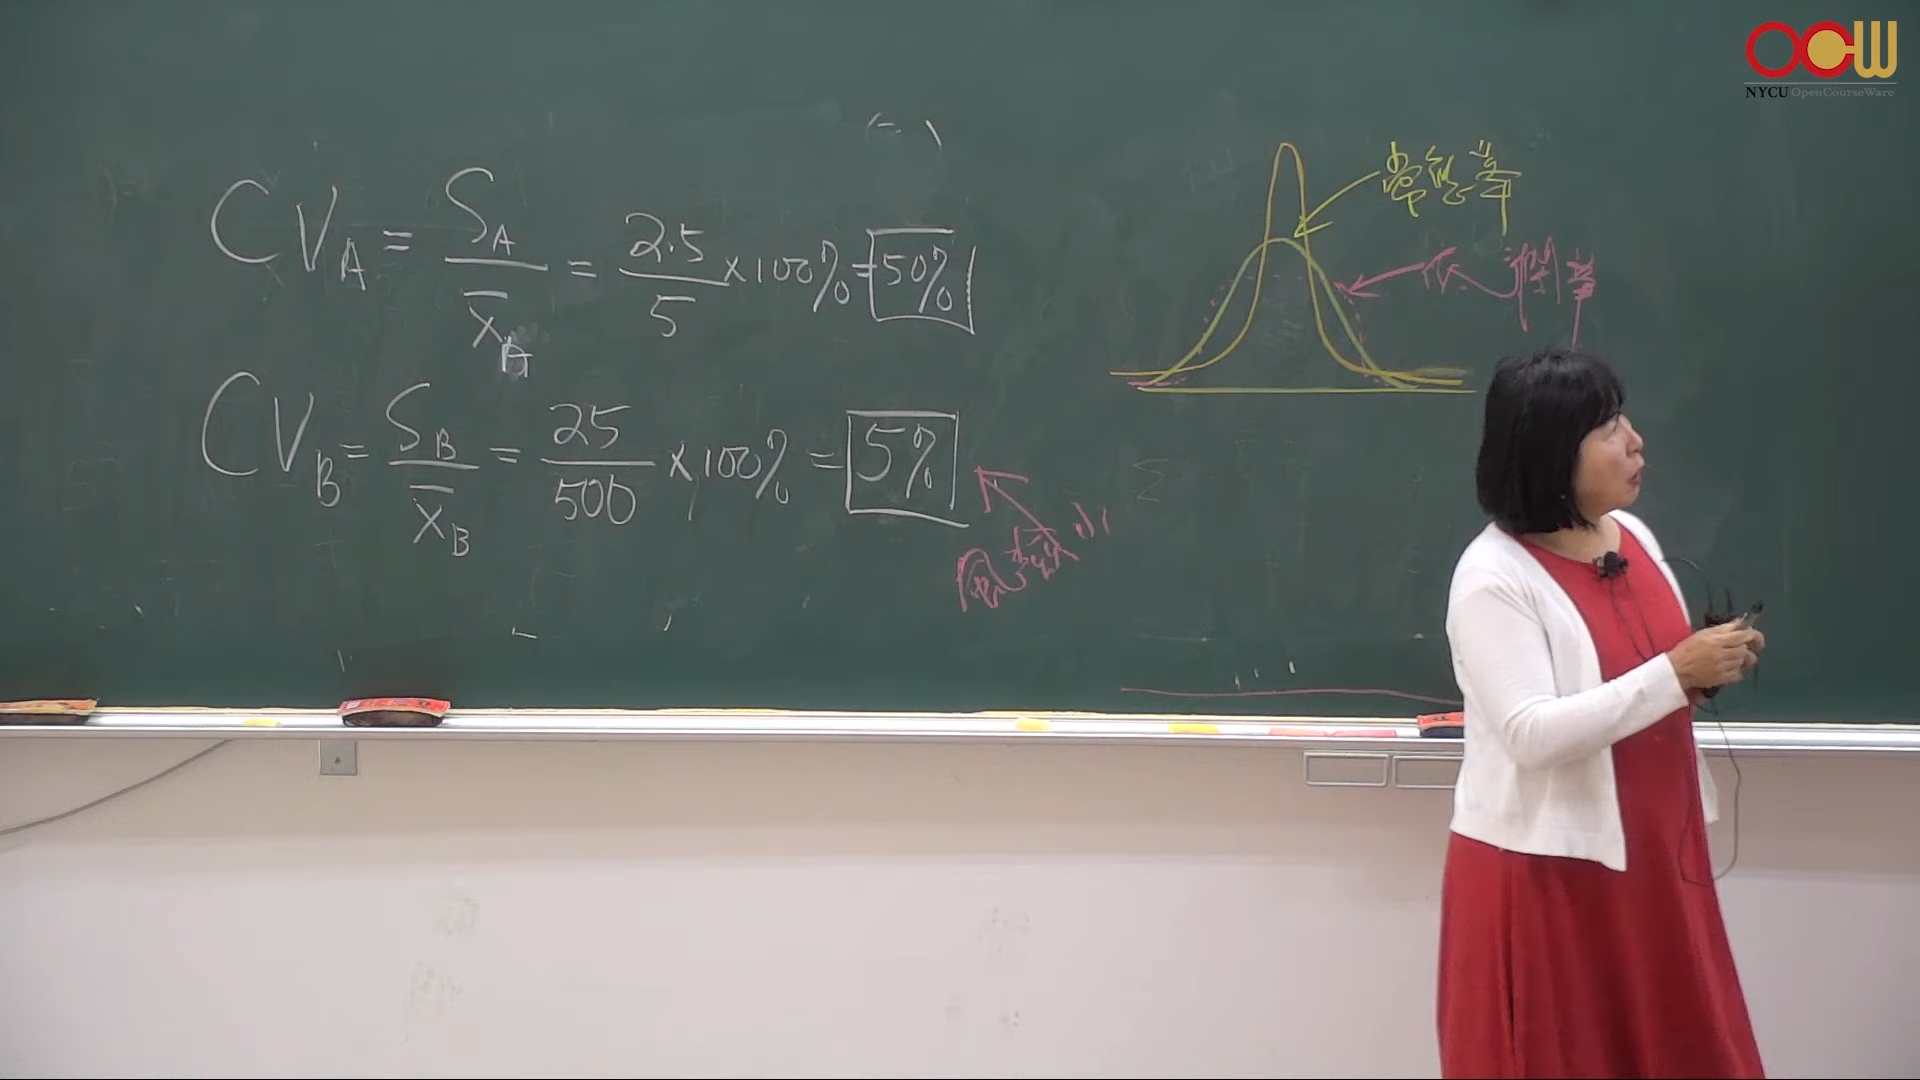 OCW
NYCU OpenCourseWare
CV_A = S_A / x̄_A = 2.5 / 5 × 100% = 50%
CV_B = S_B / x̄_B = 25 / 500 × 100% = 5%
風險小
常態峰
低闊峰